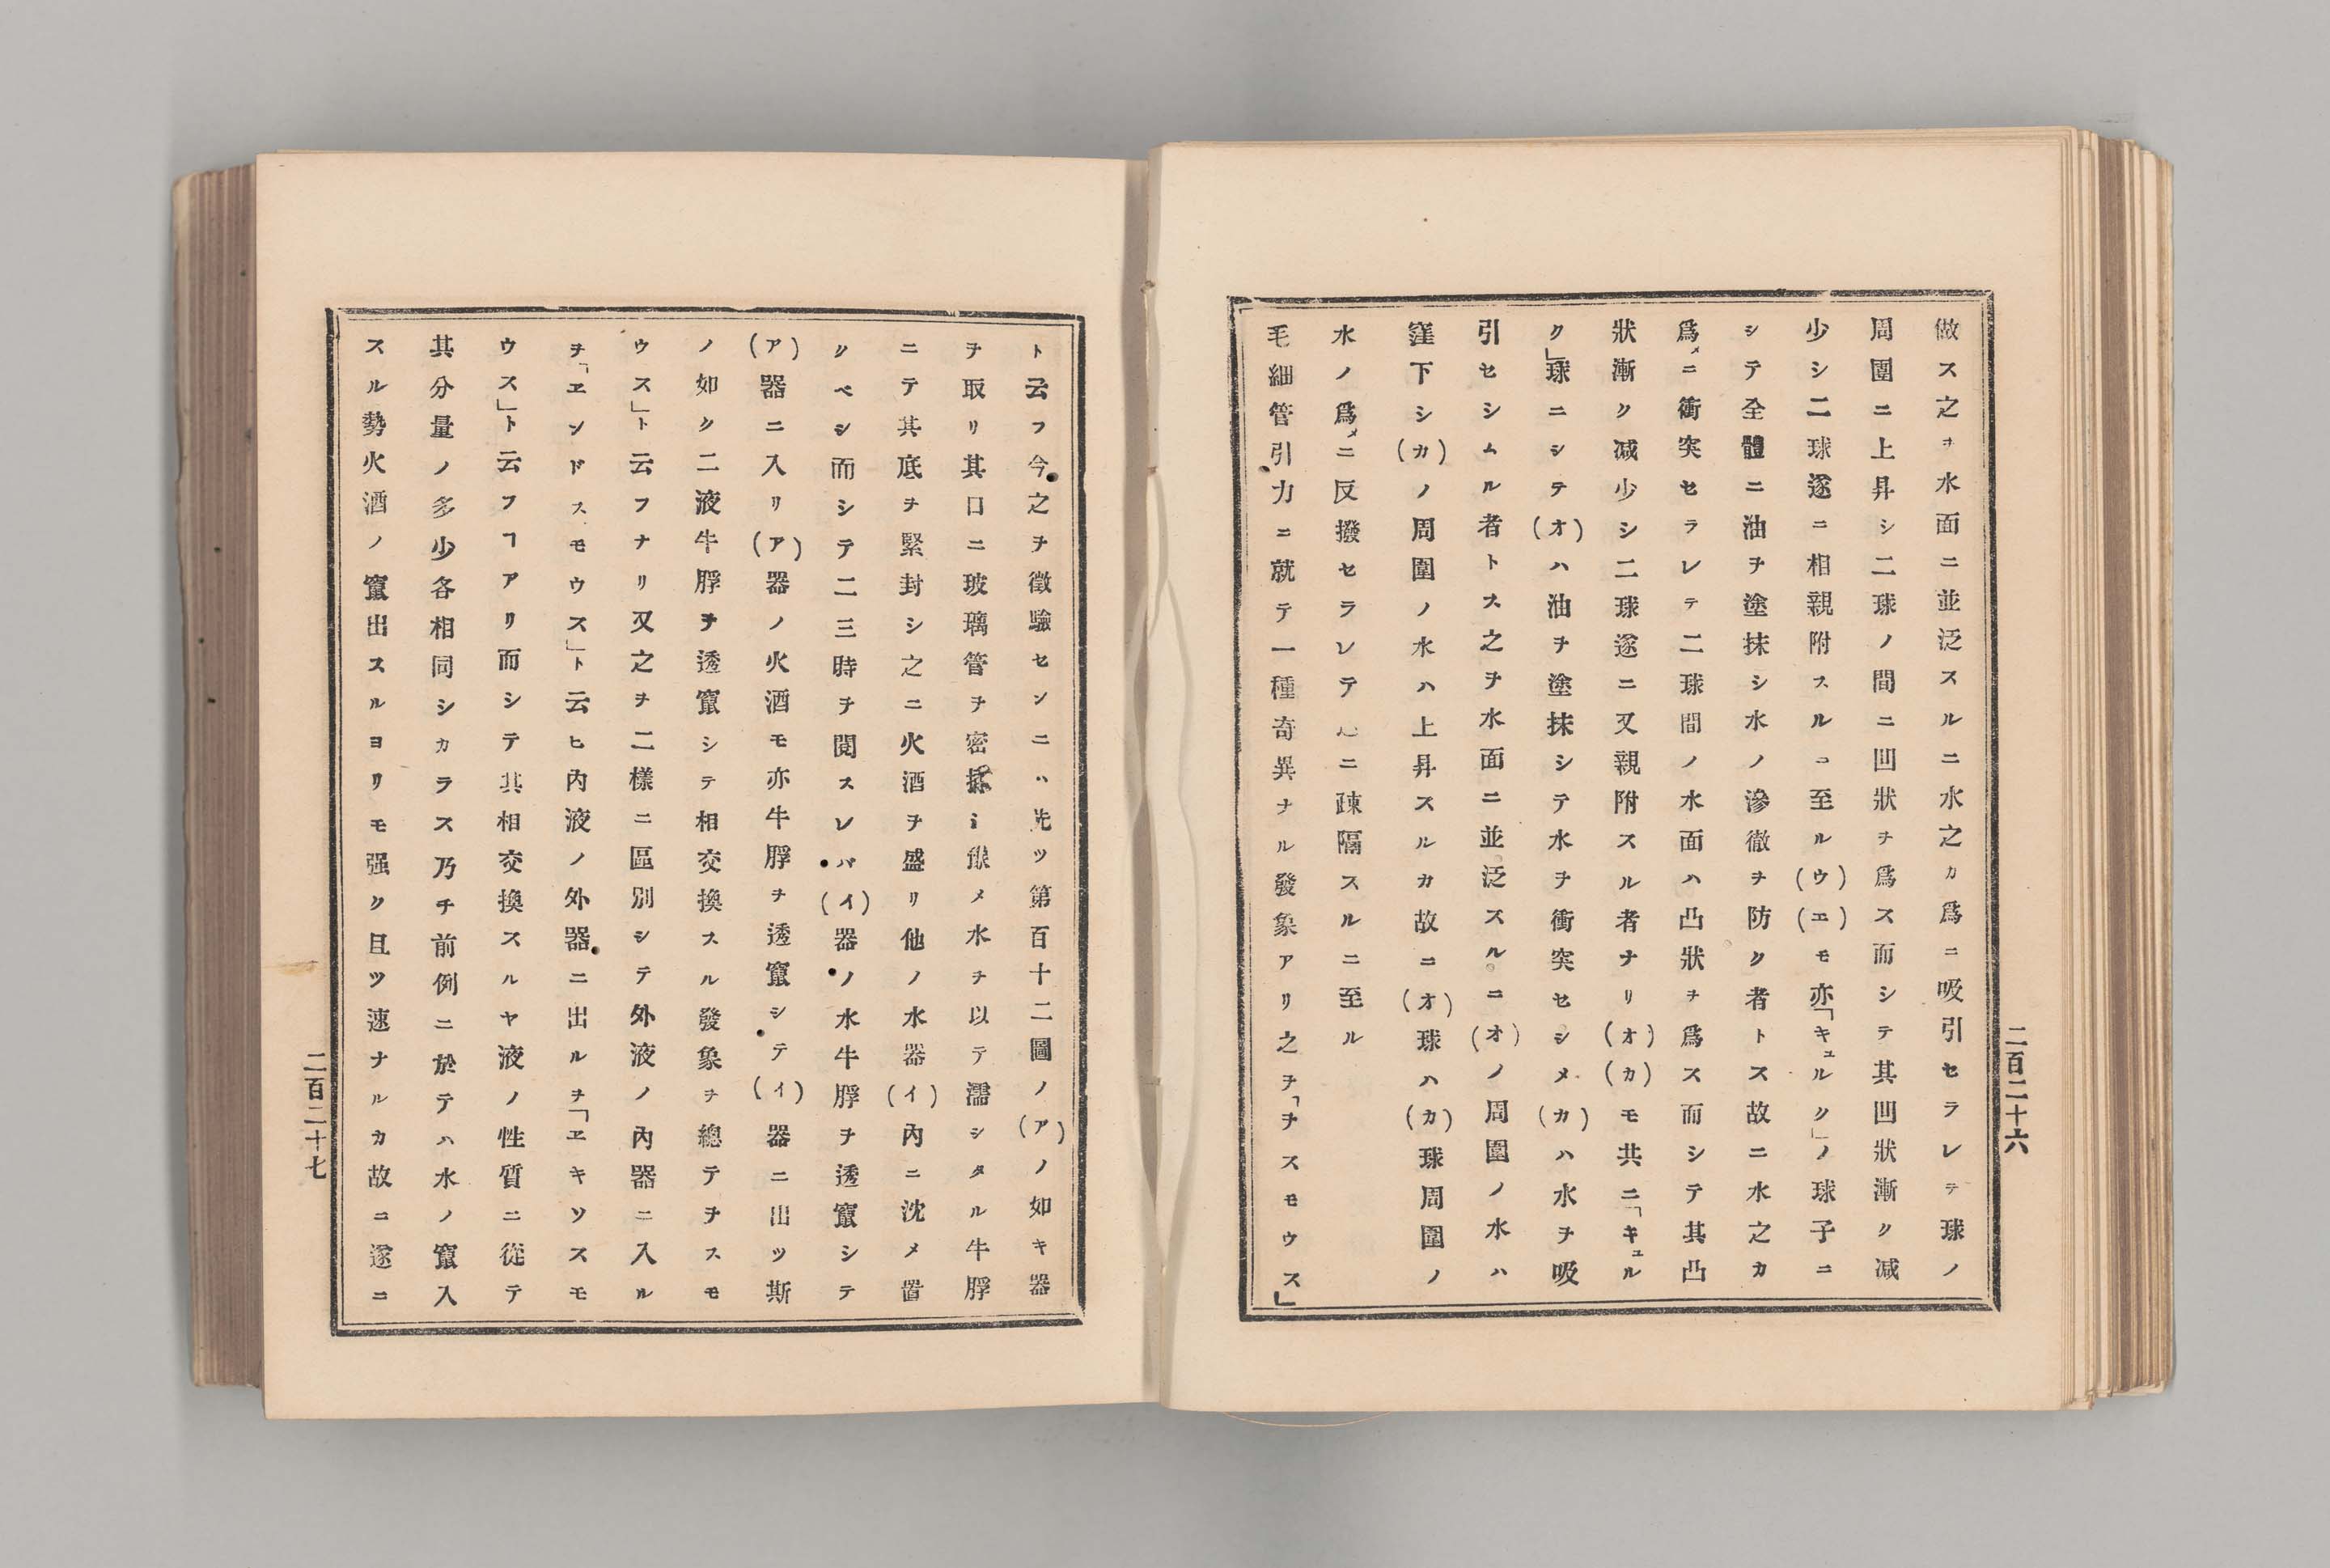 做ス之ヲ水面ニ並泛スルニ水之カ爲ニ吸引セラレテ球ノ
周圍ニ上昇シ二球ノ間ニ凹狀ヲ爲ス而シテ其凹狀漸ク减
少シ二球遂ニ相親附スルニ至ル(ウ)(エ)モ亦「キュルク」ノ球子ニ
シテ全體ニ油ヲ塗抹シ水ノ滲徹ヲ防ク者トス故ニ水之カ
爲メニ衝突セラレテ二球間ノ水面ハ凸狀ヲ爲ス而シテ其凸
狀漸ク减少シ二球遂ニ又親附スル者ナリ(オ)(カ)モ共ニ「キュル
ク」球ニシテ(オ)ハ油ヲ塗抹シテ水ヲ衝突セシメ(カ)ハ水ヲ吸
引セシムル者トス之ヲ水面ニ並泛スル。ニ(オ)ノ周圍ノ水ハ
窪下シ(カ)ノ周圍ノ水ハ上昇スルカ故ニ(オ)球ハ(カ)球周圍ノ
水ノ爲メニ反撥セラレテ ニ疎隔スルニ至ル
毛細管引力ニ就テ一種奇異ナル發象アリ之ヲ「ヲスモウス」
二百二十六
ト云フ今之ヲ徵驗センニハ先ツ第百十二圖ノ(ア)ノ如キ器
ヲ取リ其口ニ玻璃管ヲ密 メ水ヲ以テ濡シタル牛脬
ニテ其底ヲ緊封シ之ニ火酒ヲ盛リ他ノ水器(イ)內ニ沈メ置
クベシ而シテ二三時ヲ閱スレバ(イ)器ノ水牛脬ヲ透竄シテ
(ア)器ニ入リ(ア)器ノ火酒モ亦牛脬ヲ透竄シテ(イ)器ニ出ツ斯
ノ如ク二液牛脬ヲ透竄シテ相交換スル發象ヲ總テヲスモ
ウス」ト云フナリ又之ヲ二樣ニ區別シテ外液ノ內器ニ入ル
ヲ「ヱンドスモウス」ト云ヒ內液ノ外器ニ出ルヲ「ヱキソスモ
ウス」ト云フヿアリ而シテ其相交換スルヤ液ノ性質ニ從テ
其分量ノ多少各相同シカラス乃チ前例ニ於テハ水ノ竄入
スル勢火酒ノ竄出スルヨリモ强ク且ツ速ナルカ故ニ遂ニ
二百二十七